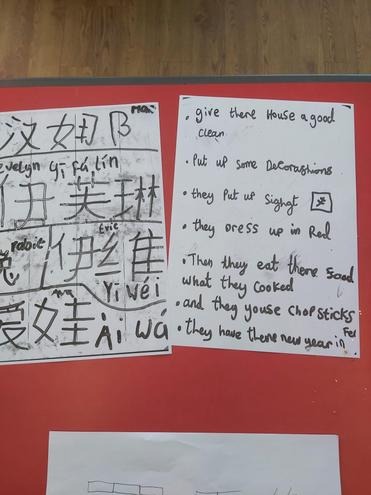 Max
汶 姐 B
evelyn Yī Fá lín
伊 芙 琳
rabit
Evie
兔 伊 维
Yī Wéi
爱 娃 Ài Wá
• give there House a good
clean
• Put up some Decorashions
• they Put up Sighgt
• they Dress up in Red
• Then they eat there Food
what they cooked
• and they youse chopsticks
• they have there new year in Feb